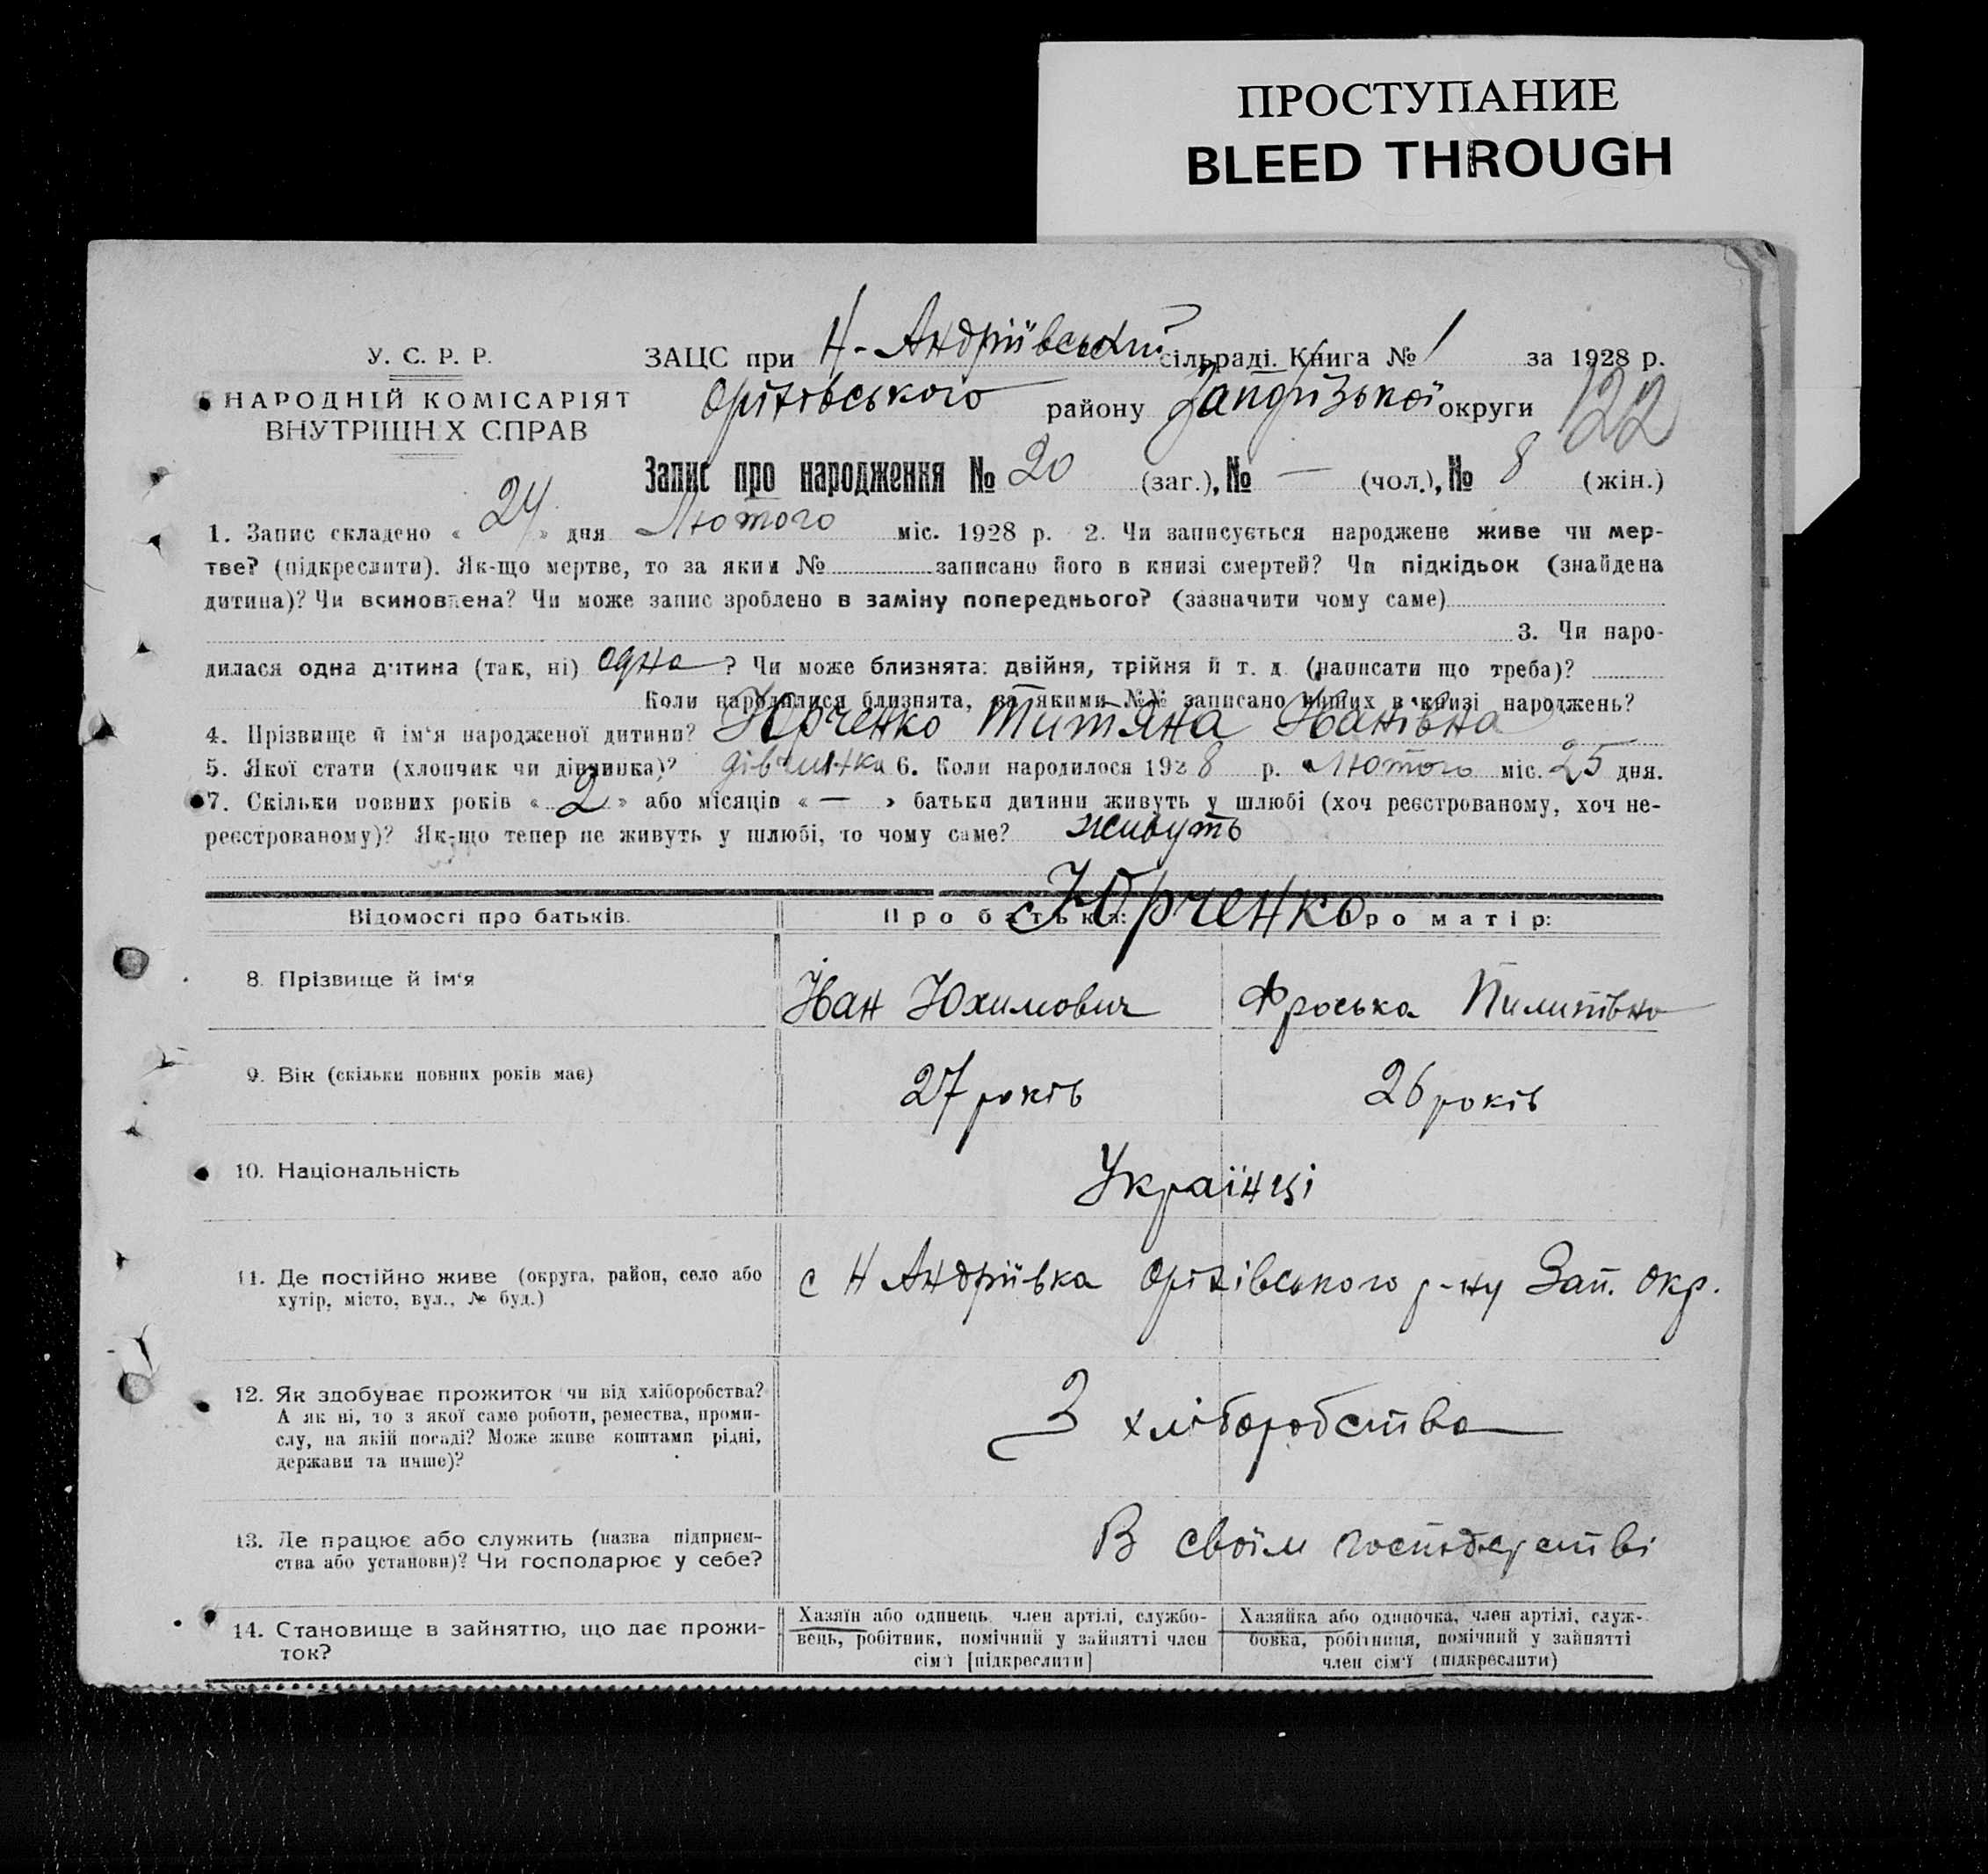 ПРОСТУПАНИЕ
BLEED THROUGH
У. С. Р. Р.
НАРОДНІЙ КОМІСАРІЯТ
ВНУТРІШН Х СПРАВ
ЗАЦС при Н-Андріївській сільраді. Книга № 1 за 1928 р.
Оріхівського району Запорізької округи 122
Запис про народження № 20 (заг.), № — (чол.), № 8 (жін.)
1. Запис складено « 24 » дня Лютого міс. 1928 р. 2. Чи записується народжене живе чи мер-
тве? (підкреслити). Як-що мертве, то за яким № записано його в книзі смертей? Чи підкідьок (знайдена
дитина)? Чи всиновлена? Чи може запис зроблено в заміну попереднього? (зазначити чому саме)
3. Чи наро-
дилася одна дитина (так, ні) одна ? Чи може близнята: двійня, трійня й т. д. (написати що треба)?
Коли народилися близнята, за якими №№ записано инших в книзі народжень?
4. Прізвище й ім'я народженої дитини? Юрченко Титяна Іванівна
5. Якої стати (хлопчик чи дівчинка)? дівчинка 6. Коли народилося 1928 р. Лютого міс. 25 дня.
7. Скільки повних років « 2 » або місяців « — » батьки дитини живуть у шлюбі (хоч реєстрованому, хоч не-
реєстрованому)? Як-що тепер не живуть у шлюбі, то чому саме? живуть
Юрченко
Відомості про батьків. Про батька: Про матір:
8. Прізвище й ім'я Іван Юхимович Фроська Пилипівна
9. Вік (скільки повних років має) 27 років 26 років
10. Національність Українці
11. Де постійно живе (округа, район, село або
хутір, місто, вул., № буд.) с Н Андріївка Оріхівського р-ну Зап. окр.
12. Як здобуває прожиток чи від хліборобства?
А як ні, то з якої саме роботи, ремества, проми-
слу, на якій посаді? Може живе коштами рідні,
держави та инше)? З хліборобства
13. Де працює або служить (назва підприєм-
ства або установи)? Чи господарює у себе? В своїм господарстві
14. Становище в зайняттю, що дає прожи-
ток?
Хазяїн або одинець, член артілі, службо-
вець, робітник, помічний у зайнятті член
сім'ї [підкреслити]
Хазяйка або одиночка, член артілі, служ-
бовка, робітниця, помічний у зайнятті
член сім'ї (підкреслити)